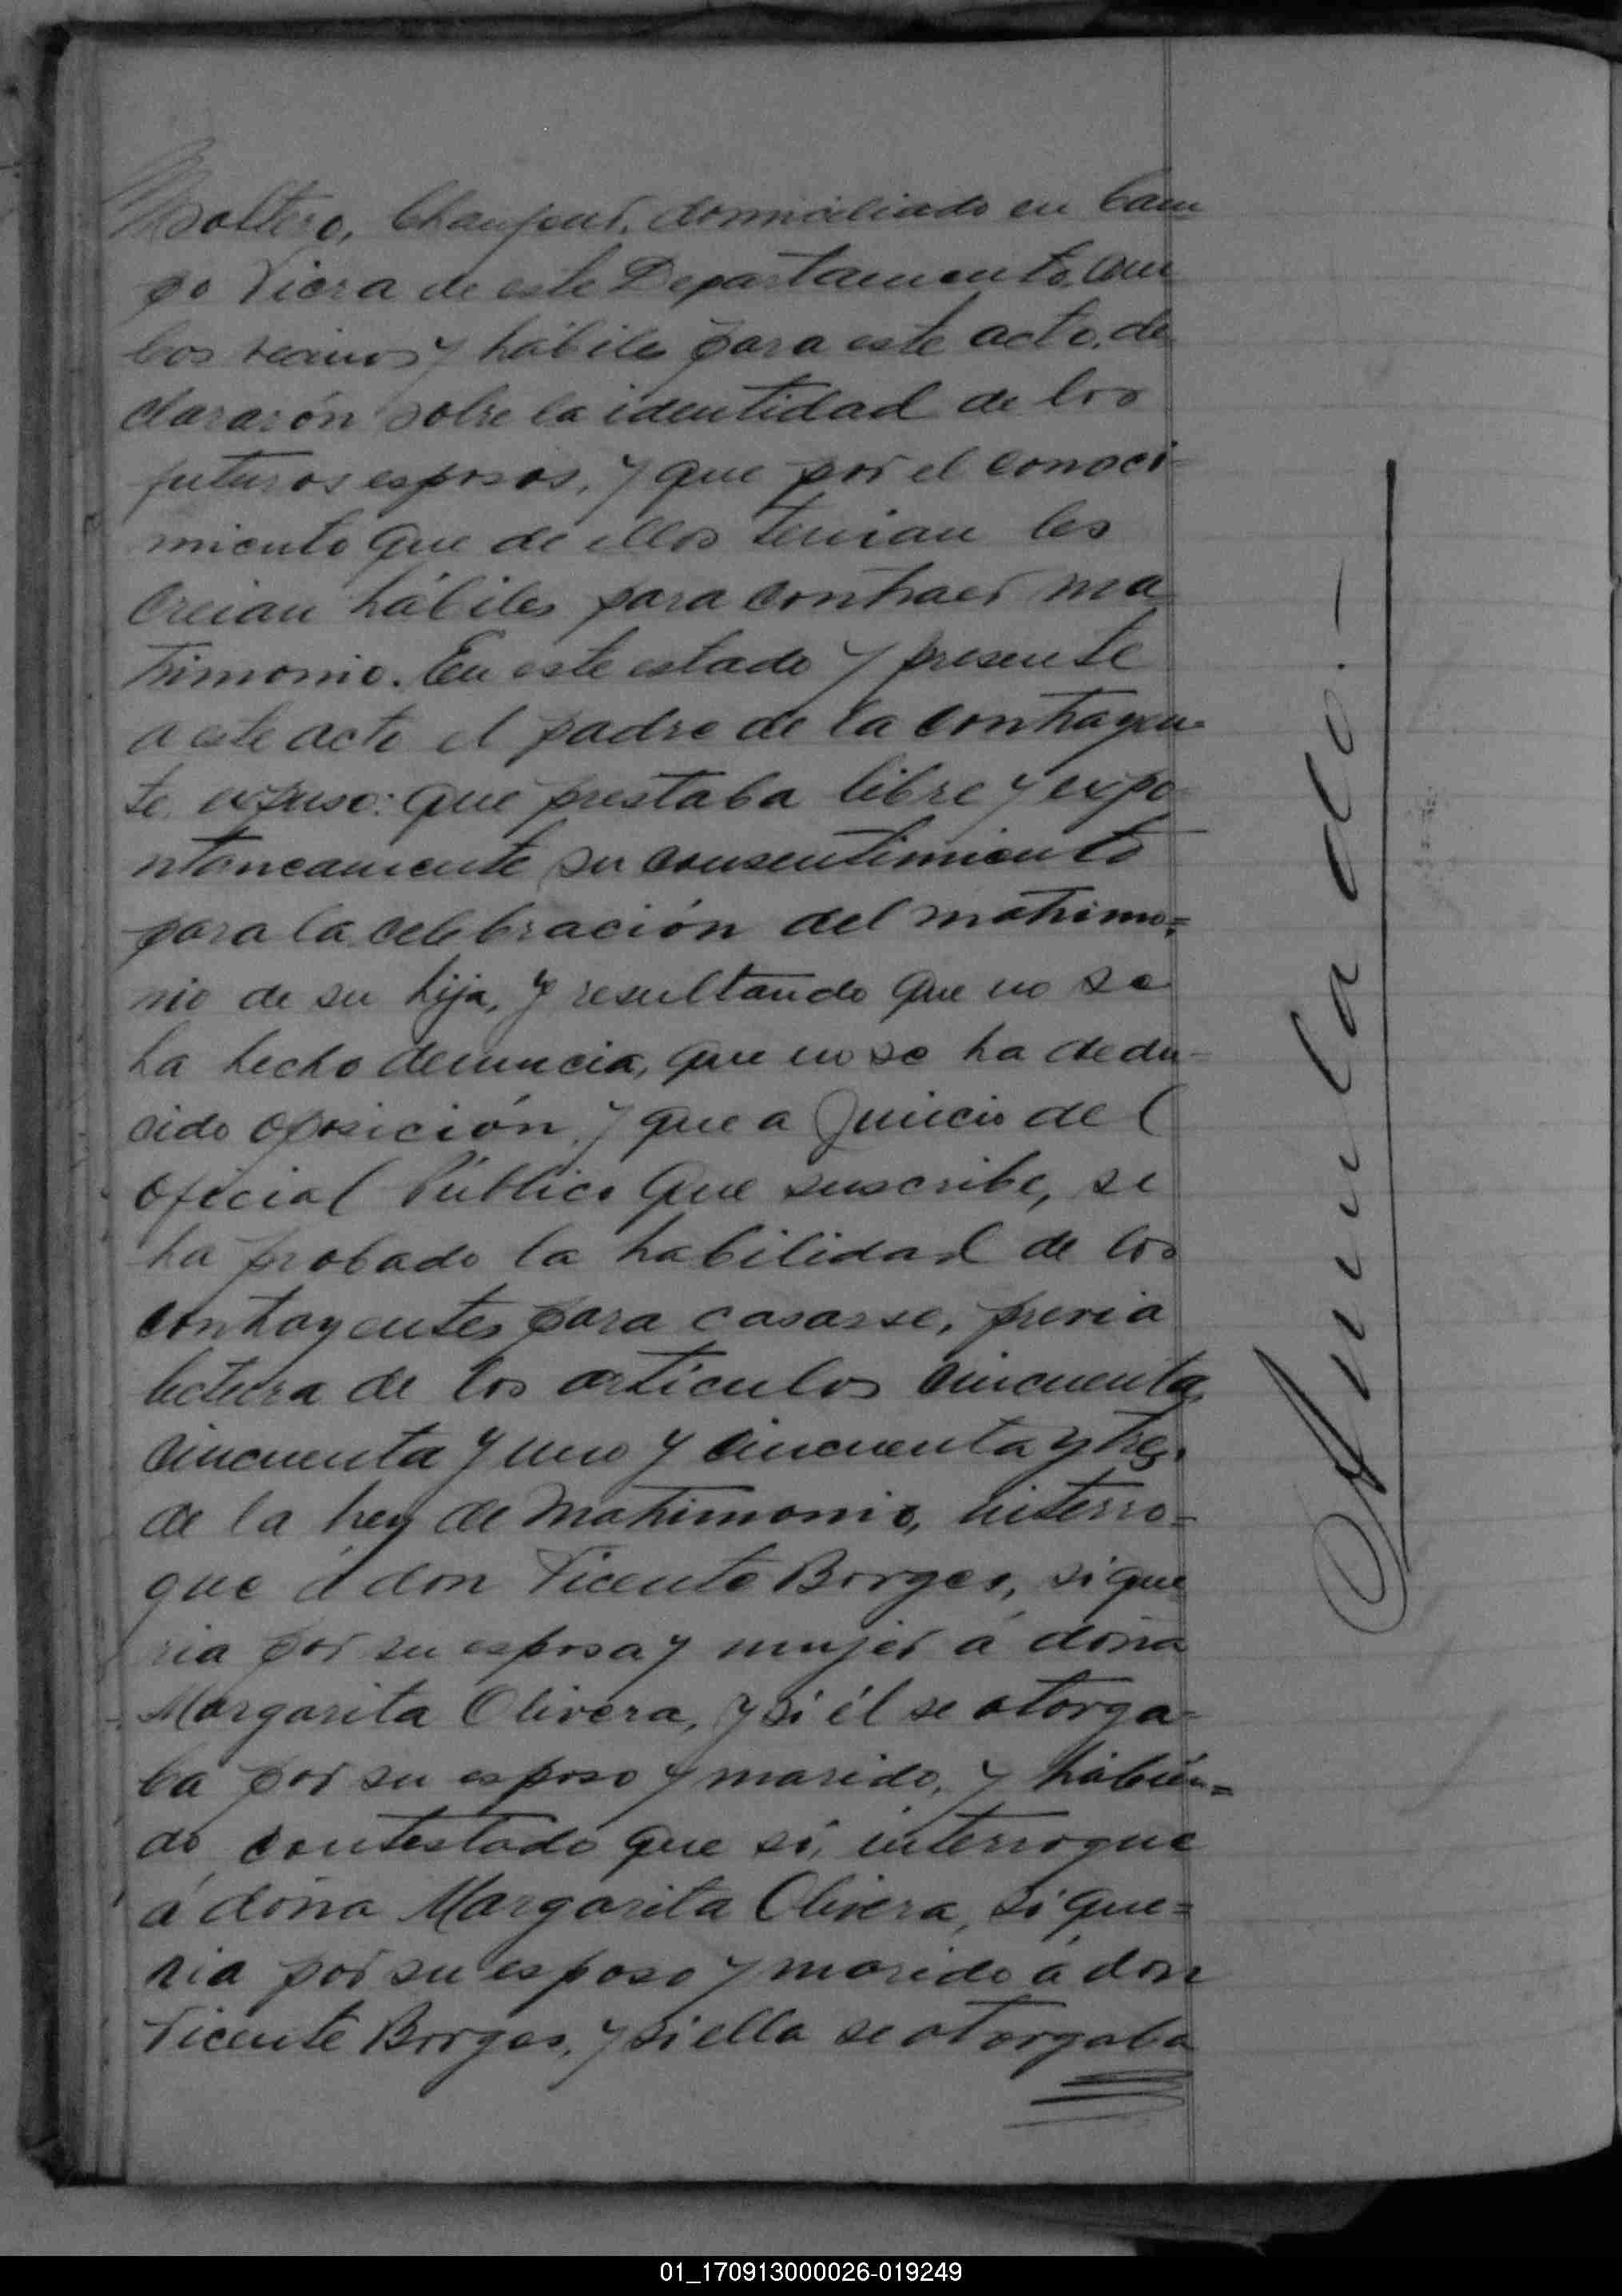 Soltero, Chaufeur, domiciliado en Cam
po Viera de este Departamento, am
bos vecinos y hábiles para este acto, de
clararón sobre la identidad de los
futuros esposos, y que por el conoci-
miento que de ellos tenian los
creian hábiles para contraer ma
trimonio. En este estado y presente
a este acto el padre de la contrayen-
te, expuso: que prestaba libre y expo-
ntaneamente su consentimiento
para la celebración del matrimo=
nio de su hija, y resultando que no se
ha hecho denuncia, que no se ha dedu-
cido oposición, y que a Juicio del
Oficial Público que suscribe, se
ha probado la habilidad de los
contrayentes para casarse, previa
lectura de los artículos cincuenta
cincuenta y uno y cincuenta y tres,
de la Ley de Matrimonio, interro=
gue á don Vicente Borges, si que
ria por su esposa y mujer á doña
Margarita Olivera, y si él se otorga=
ba por su esposo y marido, y habién=
do contestado que si, interrogue
á doña Margarita Olivera, si que=
ria por su esposo y marido á don
Vicente Borges, y si ella se otorgaba
Anulado.—
01_170913000026-019249